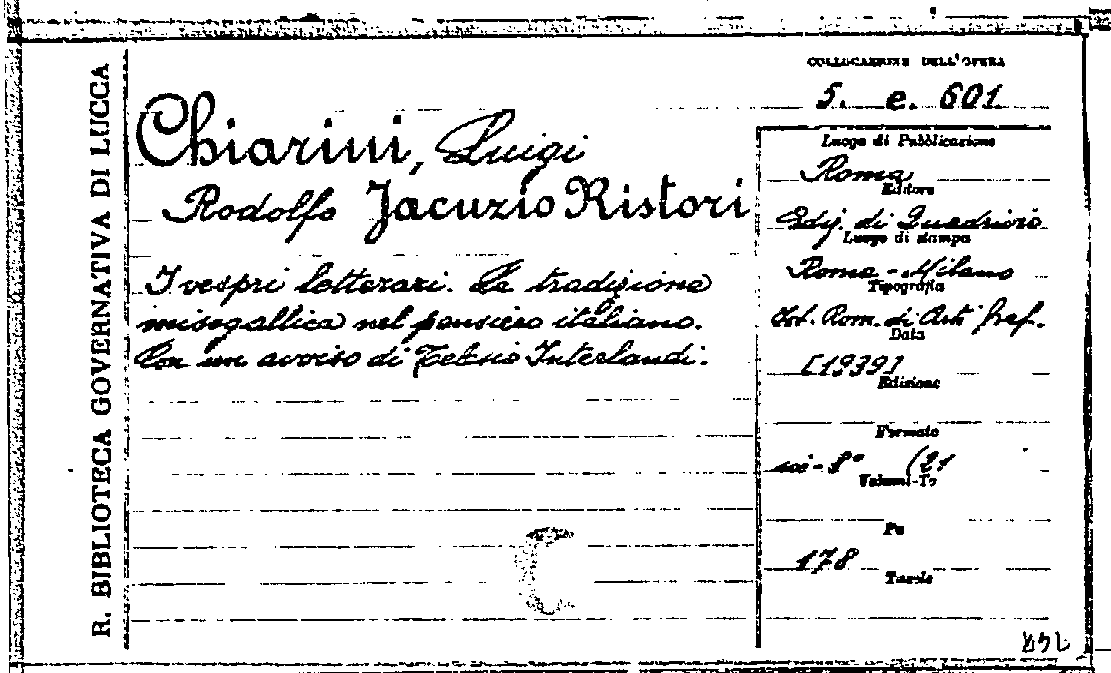 R. BIBLIOTECA GOVERNATIVA DI LUCCA
COLLOCAZIONE DELL'OPERA
5. e. 601
Chiarini, Luigi
Rodolfo Jacuzio Ristori
I vespri letterari. La tradizione
misogallica nel pensiero italiano.
Con un avviso di Telesio Interlandi.
Luogo di Pubblicazione
Roma
Editore
Ediz. di Quadrivio
Luogo di stampa
Roma - Milano
Tipografia
Ist. Rom. di Arti Graf.
Data
[1939]
Edizione
Formato
in-8° (21
Volumi-To
Pa
178
Tavole